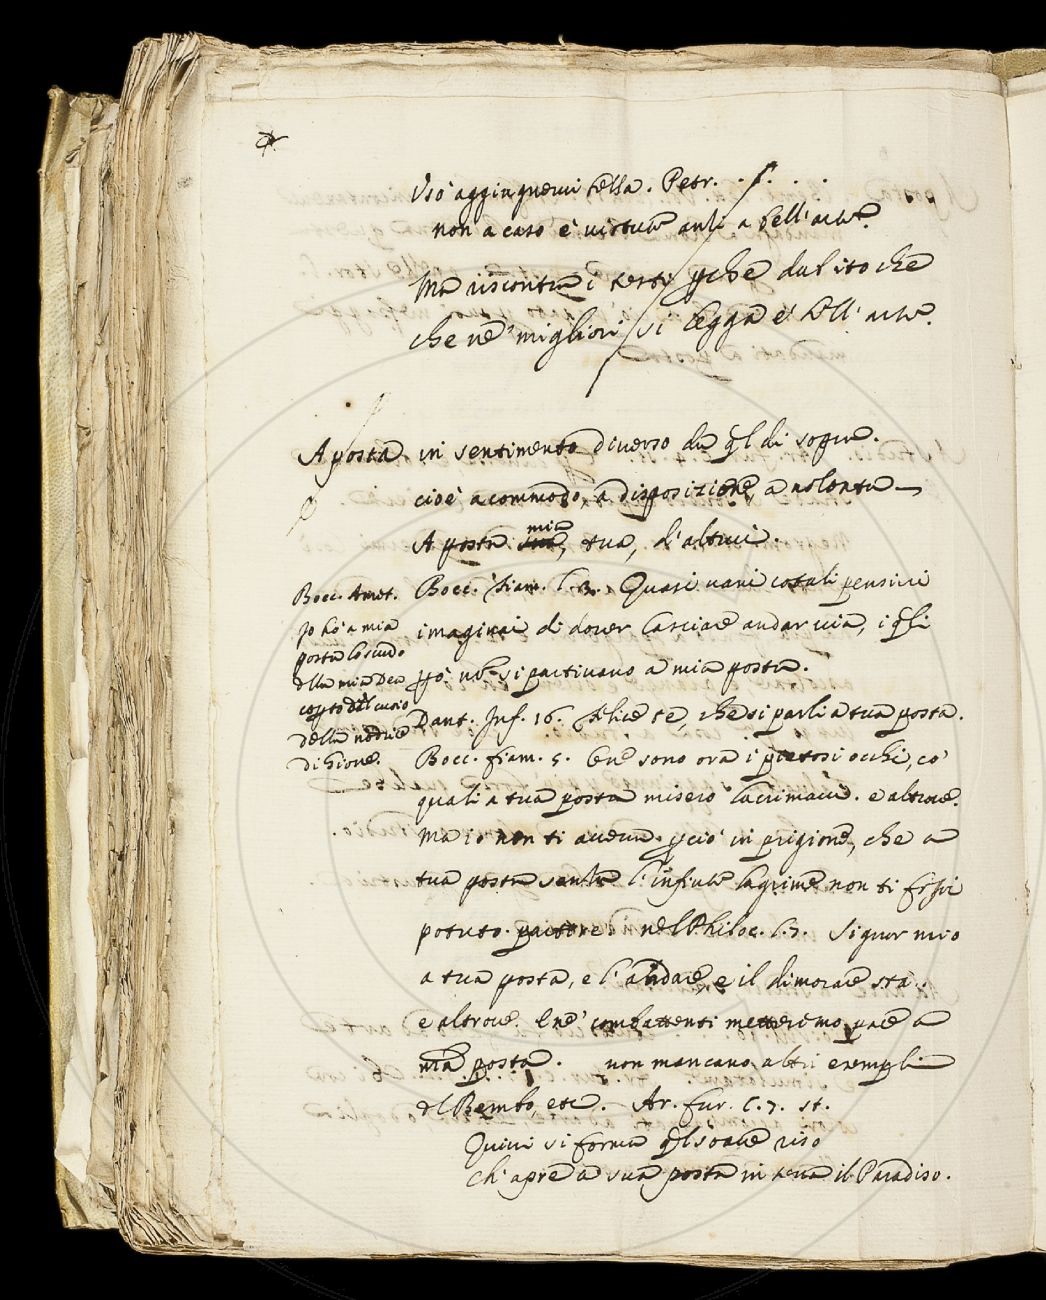 A.
Usò aggiugnervi della. Petr. . . . .
non a caso è virtute anzi a bell'arte.
Ma riscontra i testi perche dubito che
che ne' migliori si legga è bell'arte.
A posta in sentimento diverso da quel di sopra.
cioè a commodo, a disposizione, a volontà
A posta mia, tua, d'altrui.
Bocc. fiam. l. 3. Quasi vani cotali pensieri
imaginai di dover lasciare andar via, i quali
però non si partivano a mia posta.
Dant. Inf. 16. felice te, che si parli a tua posta.
Bocc. fiam. 5. Ove sono ora i pietosi occhi, co'
quali a tua posta misero lacrimavi. e altrove.
Ma io non ti aveva perciò in prigione, che a
tua posta l'infinte lagrime non ti fossi
potuto partire. nel Philoc. l. 7. Signor mio
a tua posta, e l'andare, e il dimorare sta.
e altrove. E ne' combattenti metteremo pace a
nostra posta. non mancano altri exempli
del Bembo, etc. Ar. fur. C. 7. st.
Quivi si forma quel soave riso
ch'apre a sua posta in terra il Paradiso.
Bocc. Amet.
Io hò a mia
posta lo scudo
della mia Dea
coperto del cuoio
della nodrice
di Giove.